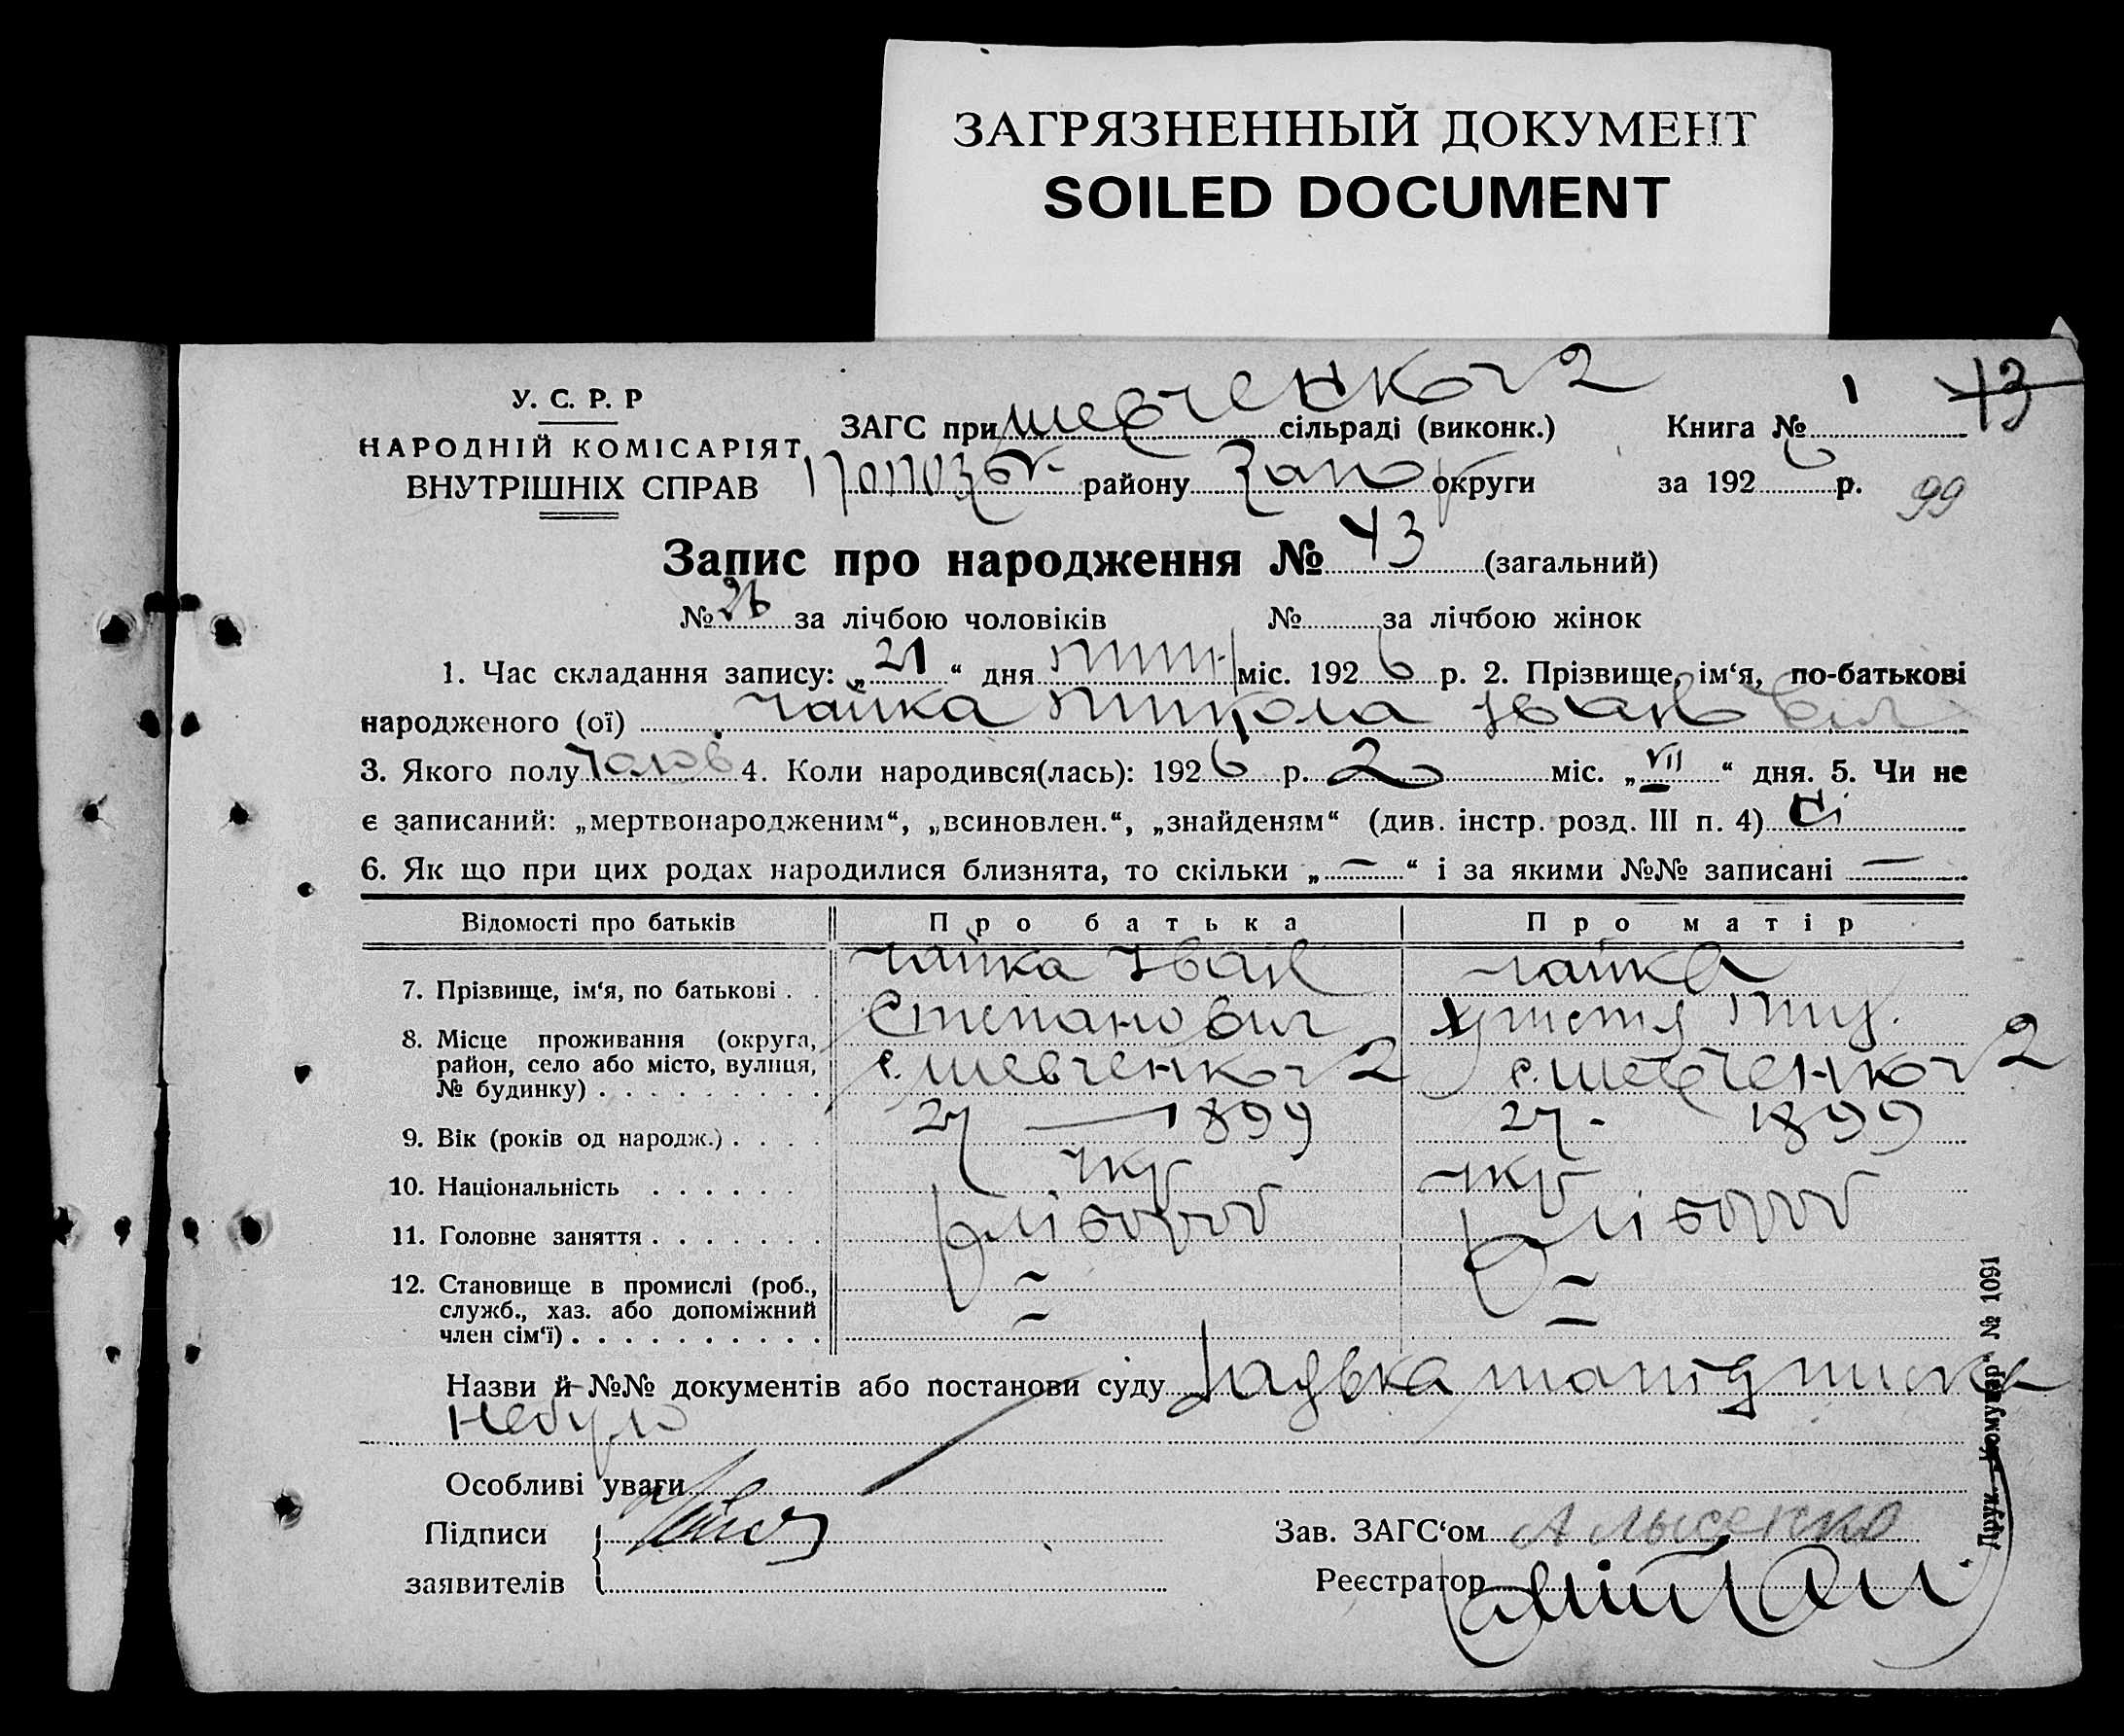 ЗАГРЯЗНЕННЫЙ ДОКУМЕНТ
SOILED DOCUMENT
У. С. Р. Р
НАРОДНІЙ КОМІСАРІЯТ
ВНУТРІШНІХ СПРАВ
ЗАГС при Шевченков 2 сільраді (виконк.)
району Запо округи
Книга № 1
за 1926 р.
43
99
Запис про народження № 43 (загальний)
№ 26 за лічбою чоловіків № за лічбою жінок
1. Час складання запису: „21“ дня міс. 1926 р. 2. Прізвище, ім‘я, по-батькові
народженого (ої) Чайка Микола Іванович
3. Якого полу чолов 4. Коли народився(лась): 1926 р. 2 міс. „VII“ дня. 5. Чи не
є записаний: „мертвонародженим“, „всиновлен.“, „знайденям“ (див. інстр. розд. III п. 4)
6. Як що при цих родах народилися близнята, то скільки „—“ і за якими №№ записані —
Відомості про батьків Про батька Про матір
7. Прізвище, ім‘я, по батькові . . Чайка Іван Степанович Чайка Христя
8. Місце проживання (округа, район, село або місто, вулиця, № будинку) . . . . . . . . . с. Шевченков 2 с. Шевченков 2
9. Вік (років од народж.) . . . . 27 — 1899 27 - 1899
10. Національність . . . . . . укр укр
11. Головне заняття . . . . . . . хлібороб хлібороб
12. Становище в промислі (роб., служб., хаз. або допоміжний член сім‘ї) . . . . . . . . . .
Назви й №№ документів або постанови суду
небуло
Особливі уваги
Підписи
заявителів
Зав. ЗАГС‘ом А Лысенко
Реєстратор
Друк. „Комунар“ № 1091